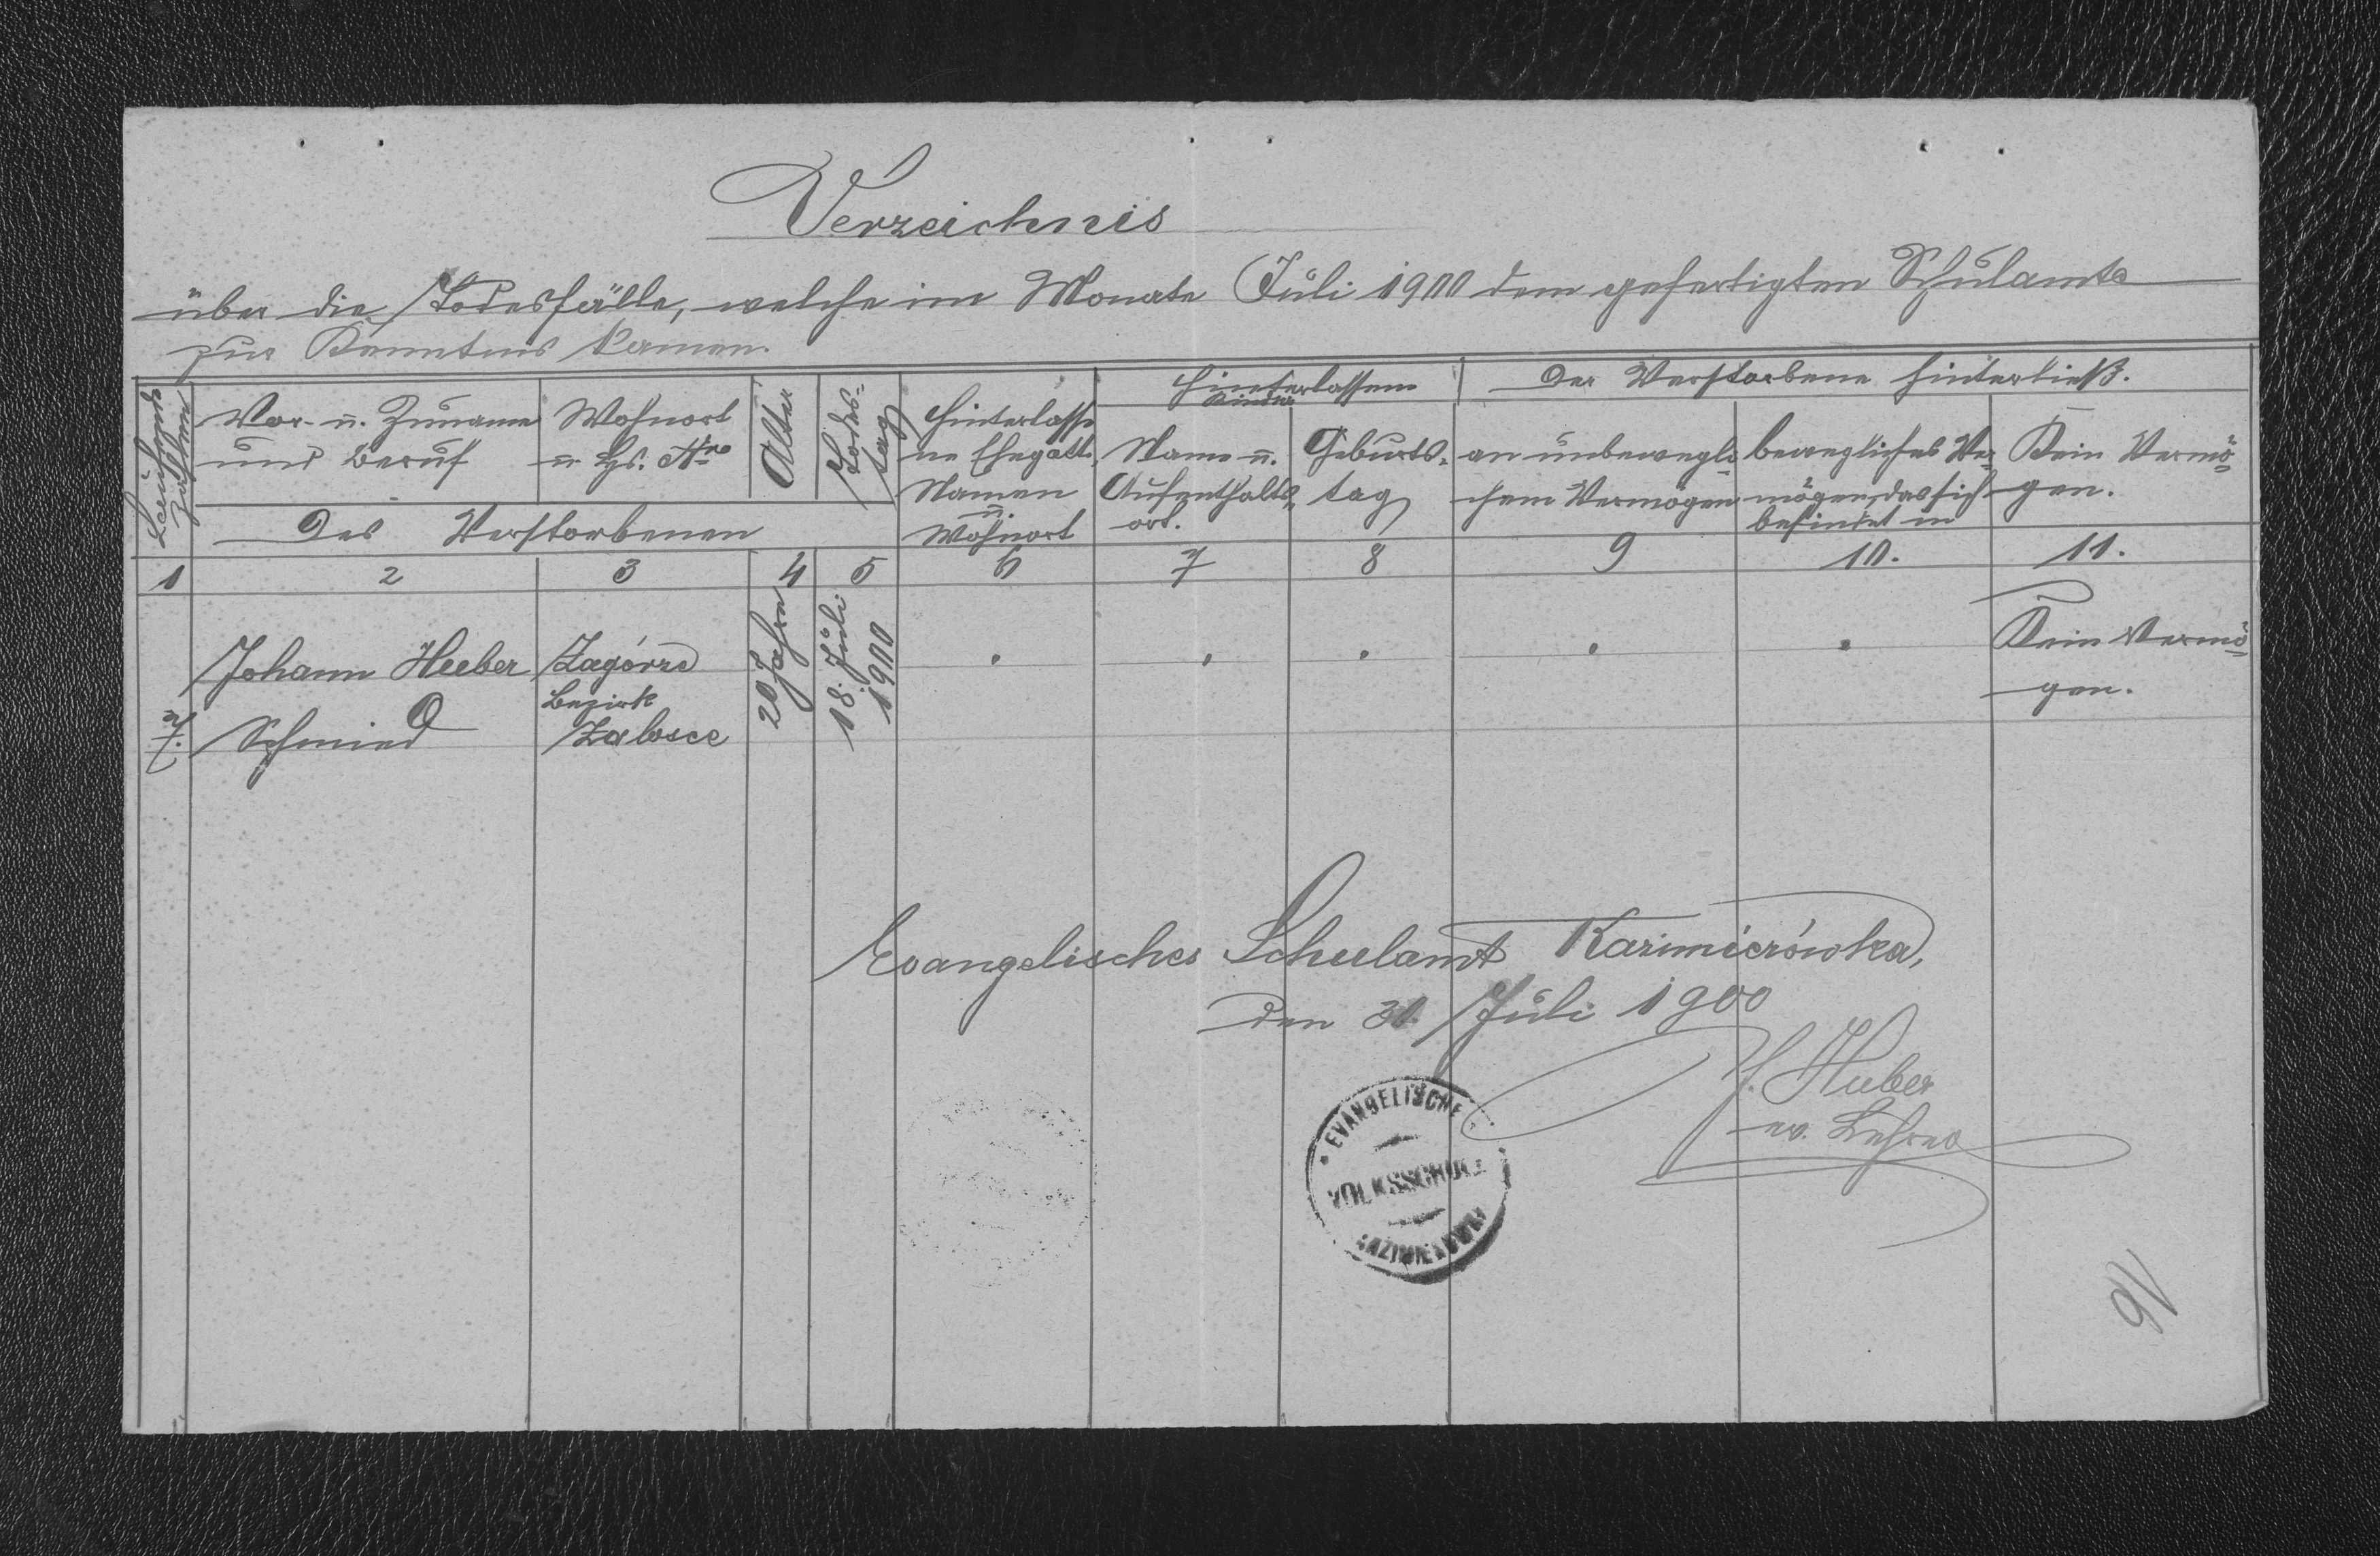 Verzeichnis
über die Todesfälle, welche im Monate Juli 1900 dem gefertigten Schulamte
zur Kenntnis kamen.
Laufende Zahlen
Vor- u. Zuname
und Beruf
Wohnort
u. Hs. Nro
Des Verstorbenen
Alter
Todes-
tag
Hinterlasse
ne Ehegatte,
Namen
u.
Wohnort
Hinterlassene
Kinder
Name u.
Aufenthalts-
ort.
Geburts-
tag
Der Verstorbene hinterließ.
an unbewegli-
chem Vermögen
bewegliches Ver-
mögen, das sich
befindet in
Kein Vermö-
gen.
1 2 3 4 5 6 7 8 9 10. 11.
7.
Johann Huber
Schmied
Zagórze
Bezirk
Załosce
20 Jahre
18. Juli
1900
Kein Vermö-
gen.
Evangelisches Schulamt Kazimierówka,
den 30. Juli 1900
J. Huber
ev. Lehrer
EVANGELISCHE
VOLKSSCHULE